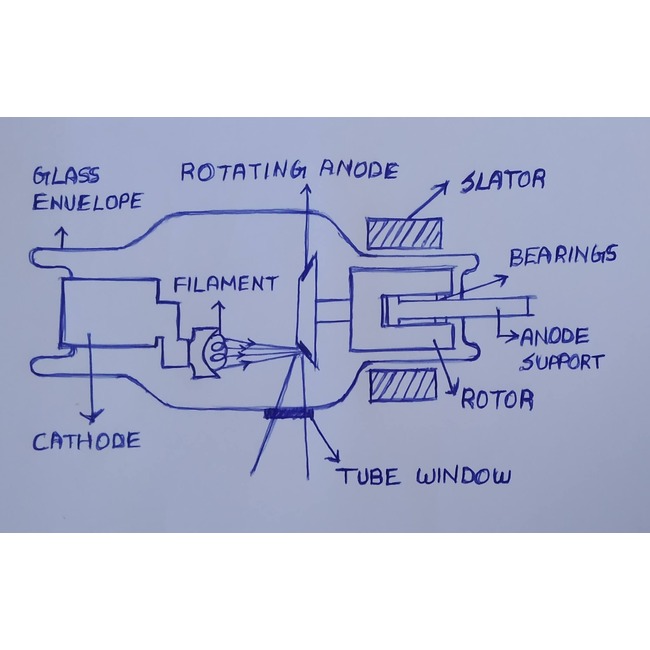 GLASS
ENVELOPE
ROTATING ANODE
SLATOR
BEARINGS
FILAMENT
ANODE
SUPPORT
ROTOR
CATHODE
TUBE WINDOW